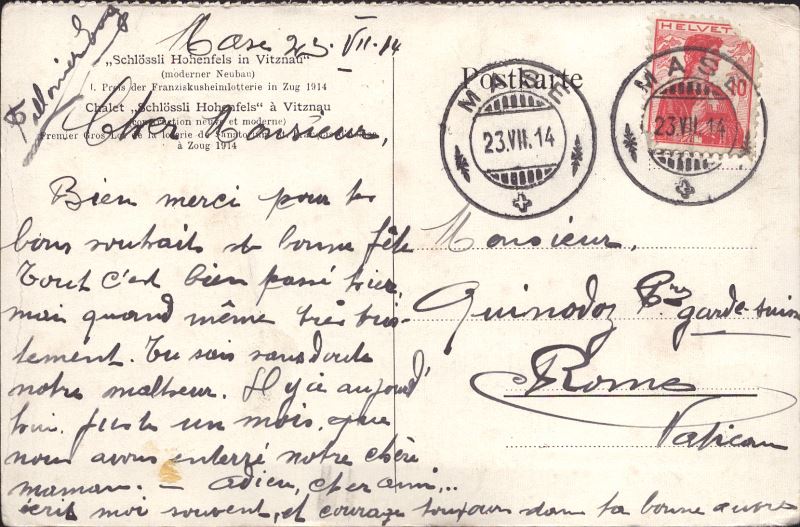 Mase 23. VII. 14
„Schlössli Hohenfels in Vitznau“
(moderner Neubau)
1. Preis der Franziskusheimlotterie in Zug 1914
Châlet „Schlössli Hohenfels“ à Vitznau
(construction neuve et moderne)
Premier Gros Lot de la loterie de
à Zoug 1914
Cher Monsieur,
Bien merci pour tes
bons souhaits de bonne fête
Tout c'est bien passé hier
mais quand même très tris-
tement. Tu sais sans doute
notre malheur. Il y a aujourd'
hui juste un mois, que
nous avons enterré notre chère
maman. — Adieu, cher ami,..
écrit moi souvent, et courage toujours dans ta bonne
Postkarte
HELVETIA
10
MASE
23.VII.14
MASE
23.VII.14
Monsieur,
Quinodoz garde suisse
Rome
Vatican